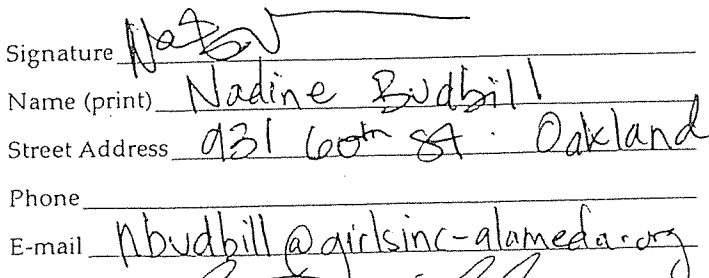 Signature
Name (print) Nadine Budbill
Street Address 931 60th St. Oakland
Phone
E-mail nbudbill@girlsinc-alameda.org